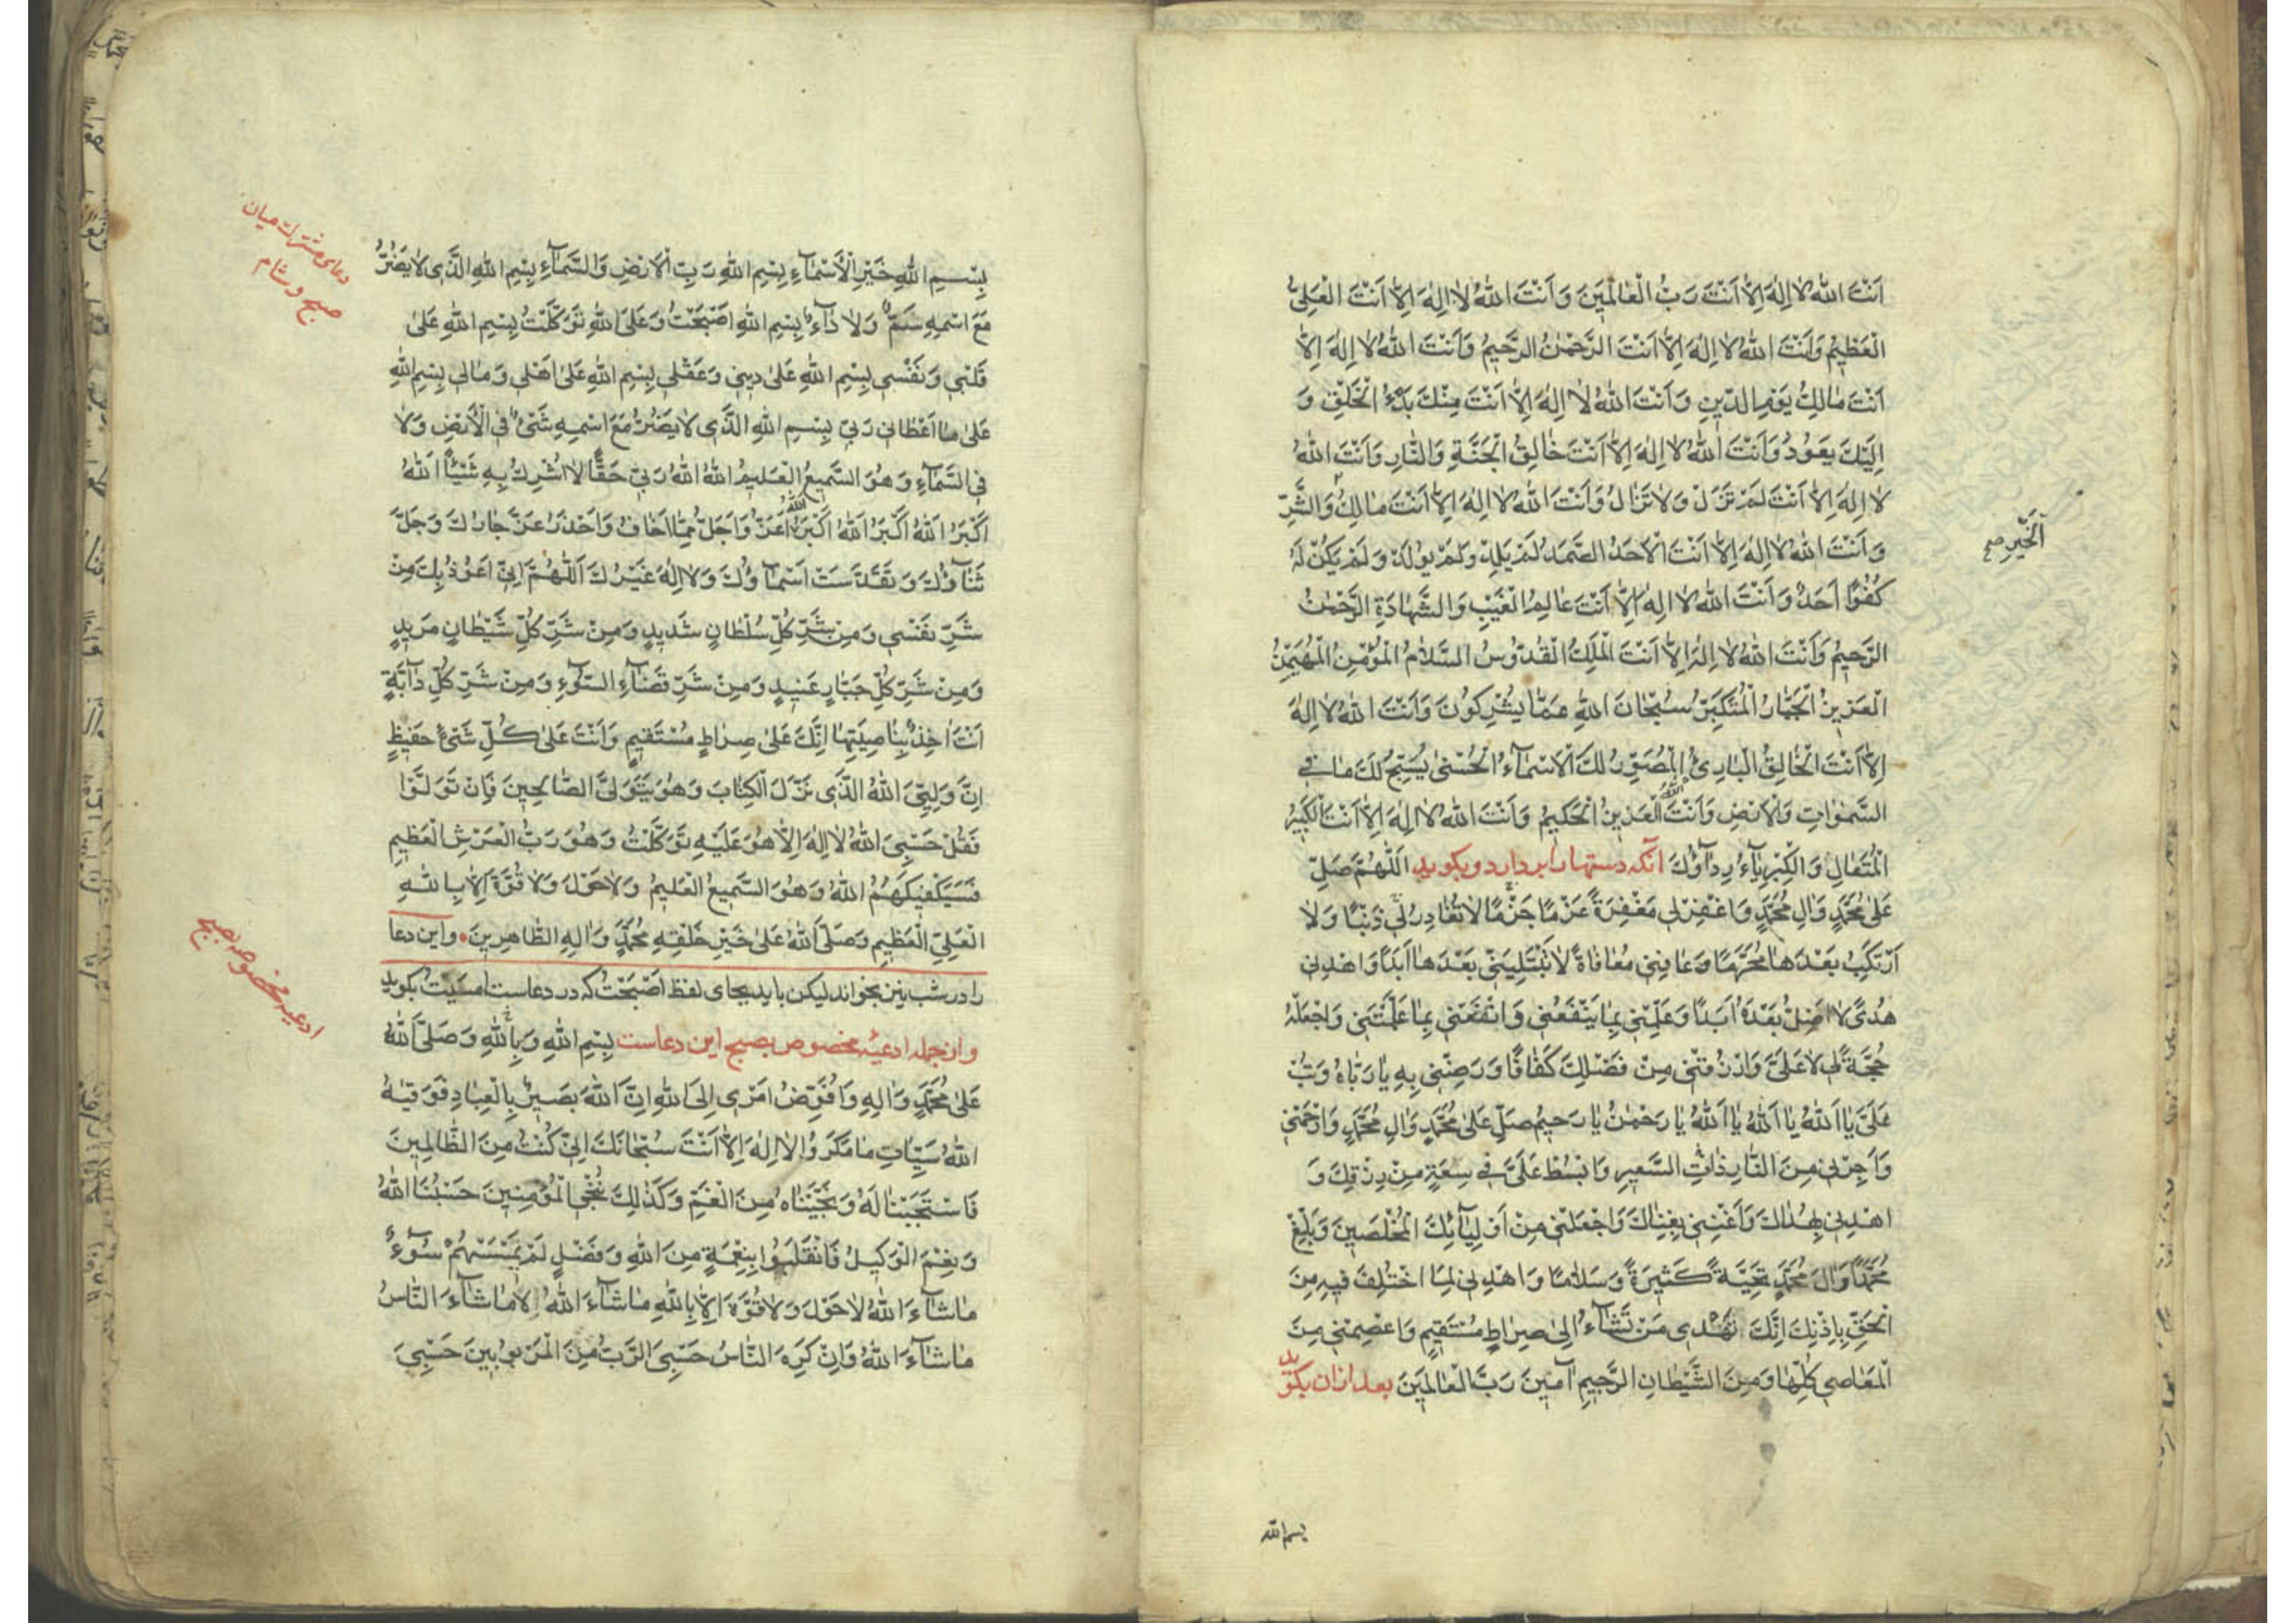 اَنْتَ اللهُ لا اِلٰهَ اِلاّ اَنْتَ رَبُّ الْعالَمينَ وَ اَنْتَ اللهُ لا اِلٰهَ اِلاّ اَنْتَ الْعَلِىُّ
الْعَظيمُ وَ اَنْتَ اللهُ لا اِلٰهَ اِلاّ اَنْتَ الرَّحْمٰنُ الرَّحيمُ وَ اَنْتَ اللهُ لا اِلٰهَ اِلاّ
اَنْتَ مٰالِكُ يَوْمِ الدّينِ وَ اَنْتَ اللهُ لا اِلٰهَ اِلاّ اَنْتَ مِنْكَ بَدْءُ الْخَلْقِ وَ
اِلَيْكَ يَعُودُ وَ اَنْتَ اللهُ لا اِلٰهَ اِلاّ اَنْتَ خٰالِقُ الْجَنَّةِ وَ النّارِ وَ اَنْتَ اللهُ
لا اِلٰهَ اِلاّ اَنْتَ لَمْ تَزَلْ وَ لا تَزٰالُ وَ اَنْتَ اللهُ لا اِلٰهَ اِلاّ اَنْتَ مٰالِكُ وَ الشَّرِّ
اَلْخَيْرِ صح
وَ اَنْتَ اللهُ لا اِلٰهَ اِلاّ اَنْتَ الْاَحَدُ الصَّمَدُ لَمْ يَلِدْ وَ لَمْ يُولَدْ وَ لَمْ يَكُنْ لَهُ
كُفُوًا اَحَدٌ وَ اَنْتَ اللهُ لا اِلٰهَ اِلاّ اَنْتَ عٰالِمُ الْغَيْبِ وَ الشَّهٰادَةِ الرَّحْمٰنُ
الرَّحيمُ وَ اَنْتَ اللهُ لا اِلٰهَ اِلاّ اَنْتَ الْمَلِكُ الْقُدُّوسُ السَّلامُ الْمُؤْمِنُ الْمُهَيْمِنُ
الْعَزيزُ الْجَبّارُ الْمُتَكَبِّرُ سُبْحٰانَ اللهِ عَمّا يُشْرِكُونَ وَ اَنْتَ اللهُ لا اِلٰهَ
اِلاّ اَنْتَ الْخٰالِقُ الْبارِئُ الْمُصَوِّرُ لَكَ الْاَسْمآءُ الْحُسْنىٰ يُسَبِّحُ لَكَ مٰا فِى
السَّمٰوٰاتِ وَ الْاَرْضِ وَ اَنْتَ اللهُ الْعَزيزُ الْحَكيمُ وَ اَنْتَ اللهُ لا اِلٰهَ اِلاّ اَنْتَ الْكَبيرُ
الْمُتَعٰالِ وَ الْكِبْرِيٰآءُ رِدٰآؤُكَ آنكه دستها را بردارد و بگويد اَللّٰهُمَّ صَلِّ
عَلىٰ مُحَمَّدٍ وَ اٰلِ مُحَمَّدٍ وَ اغْفِرْ لى مَغْفِرَةً عَزْمًا جَزْمًا لا تُغٰادِرُ لى ذَنْبًا وَ لا
اَرْتَكِبُ بَعْدَهٰا مُحَرَّمًا وَ عٰافِنى مُعٰافٰاةً لا تَبْتَلِيَنّى بَعْدَهٰا اَبَدًا وَ اهْدِنى
هُدًى لا اَضِلُّ بَعْدَهُ اَبَدًا وَ عَلِّمْنى بِمٰا يَنْفَعُنى وَ انْفَعْنى بِمٰا عَلَّمْتَنى وَ اجْعَلْهُ
حُجَّةً لى لا عَلَىَّ وَ ارْزُقْنى مِنْ فَضْلِكَ كَفٰافًا وَ رَضِّنى بِهِ يٰا رَبّٰاهُ وَ تُبْ
عَلَىَّ يٰا اَللهُ يٰا اَللهُ يٰا اَللهُ يٰا رَحْمٰنُ يٰا رَحيمُ صَلِّ عَلىٰ مُحَمَّدٍ وَ اٰلِ مُحَمَّدٍ وَ ارْحَمْنى
وَ اَجِرْنى مِنَ النّارِ ذٰاتِ السَّعيرِ وَ ابْسُطْ عَلَىَّ فى سِعَةِ مِنْ رِزْقِكَ وَ
اهْدِنى بِهُدٰاكَ وَ اَغْنِنى بِغِنٰاكَ وَ اجْعَلْنى مِنْ اَوْلِيٰآئِكَ الْمُخْلَصينَ وَ بَلِّغْ
مُحَمَّدًا وَ اٰلَ مُحَمَّدٍ تَحِيَّةً كَثيرَةً وَ سَلامًا وَ اهْدِنى لِمَا اخْتُلِفَ فيهِ مِنَ
الْحَقِّ بِاِذْنِكَ اِنَّكَ تَهْدى مَنْ تَشٰآءُ اِلىٰ صِرٰاطٍ مُسْتَقيمٍ وَ اعْصِمْنى مِنَ
الْمَعٰاصى كُلِّهٰا وَ مِنَ الشَّيْطٰانِ الرَّجيمِ اٰمينَ رَبَّ الْعٰالَمينَ بعد از ان بگويد
بسم الله
دعاى مشترك ميان
صبح و شام
بِسْمِ اللهِ خَيْرِ الْاَسْمٰآءِ بِسْمِ اللهِ رَبِّ الْاَرْضِ وَ السَّمٰآءِ بِسْمِ اللهِ الَّذى لا يَضُرُّ
مَعَ اسْمِهِ سَمٌّ وَ لا دٰآءٌ بِسْمِ اللهِ اَصْبَحْتُ وَ عَلَى اللهِ تَوَكَّلْتُ بِسْمِ اللهِ عَلىٰ
قَلْبى وَ نَفْسى بِسْمِ اللهِ عَلىٰ دينى وَ عَقْلى بِسْمِ اللهِ عَلىٰ اَهْلى وَ مٰالى بِسْمِ اللهِ
عَلىٰ مٰا اَعْطٰانى رَبّى بِسْمِ اللهِ الَّذى لا يَضُرُّ مَعَ اسْمِهِ شَىْءٌ فِى الْاَرْضِ وَ لا
فِى السَّمٰآءِ وَ هُوَ السَّميعُ الْعَليمُ اَللهُ اَللهُ رَبّى حَقًّا لا اُشْرِكُ بِهِ شَيْئًا اَللهُ
اَكْبَرُ اَللهُ اَكْبَرُ اَللهُ اَكْبَرُ اللهُ اَعَزُّ وَ اَجَلُّ مِمّا اَخٰافُ وَ اَحْذَرُ عَزَّ جٰارُكَ وَ جَلَّ
ثَنٰآؤُكَ وَ تَقَدَّسَتْ اَسْمٰآؤُكَ وَ لا اِلٰهَ غَيْرُكَ اَللّٰهُمَّ اِنّى اَعُوذُ بِكَ مِنْ
شَرِّ نَفْسى وَ مِنْ شَرِّ كُلِّ سُلْطٰانٍ شَديدٍ وَ مِنْ شَرِّ كُلِّ شَيْطٰانٍ مَريدٍ
وَ مِنْ شَرِّ كُلِّ جَبّٰارٍ عَنيدٍ وَ مِنْ شَرِّ قَضٰآءِ السُّوٓءِ وَ مِنْ شَرِّ كُلِّ دٰآبَّةٍ
اَنْتَ اٰخِذٌ بِنٰاصِيَتِهٰا اِنَّكَ عَلىٰ صِرٰاطٍ مُسْتَقيمٍ وَ اَنْتَ عَلىٰ كُلِّ شَىْءٍ حَفيظٌ
اِنَّ وَلِيِّىَ اللهُ الَّذى نَزَّلَ الْكِتٰابَ وَ هُوَ يَتَوَلَّى الصّٰالِحينَ فَاِنْ تَوَلَّوْا
فَقُلْ حَسْبِىَ اللهُ لا اِلٰهَ اِلاّ هُوَ عَلَيْهِ تَوَكَّلْتُ وَ هُوَ رَبُّ الْعَرْشِ الْعَظيمِ
فَسَيَكْفيكَهُمُ اللهُ وَ هُوَ السَّميعُ الْعَليمُ وَ لا حَوْلَ وَ لا قُوَّةَ اِلاّ بِاللهِ
الْعَلِىِّ الْعَظيمِ وَ صَلَّى اللهُ عَلىٰ خَيْرِ خَلْقِهِ مُحَمَّدٍ وَ اٰلِهِ الطّٰاهِرينَ واين دعا
را در شب نيز بخواند ليكن بايد بجاى لفظ اَصْبَحْتُ كه در دعاست اَمْسَيْتُ بگويد
وازجمله ادعيۀ مخصوص بصبح اين دعاست بِسْمِ اللهِ وَ بِاللهِ وَ صَلَّى اللهُ
ادعيه مخصوص بصبح
عَلىٰ مُحَمَّدٍ وَ اٰلِهِ وَ اُفَوِّضُ اَمْرى اِلَى اللهِ اِنَّ اللهَ بَصيرٌ بِالْعِبٰادِ فَوَقٰيهُ
اللهُ سَيِّئٰاتِ مٰا مَكَرُوا لا اِلٰهَ اِلاّ اَنْتَ سُبْحٰانَكَ اِنّى كُنْتُ مِنَ الظّٰالِمينَ
فَاسْتَجَبْنٰا لَهُ وَ نَجَّيْنٰاهُ مِنَ الْغَمِّ وَ كَذٰلِكَ نُنْجِى الْمُؤْمِنينَ حَسْبُنَا اللهُ
وَ نِعْمَ الْوَكيلُ فَانْقَلَبُوا بِنِعْمَةٍ مِنَ اللهِ وَ فَضْلٍ لَمْ يَمْسَسْهُمْ سُوٓءٌ
مٰا شٰآءَ اللهُ لا حَوْلَ وَ لا قُوَّةَ اِلاّ بِاللهِ مٰا شٰآءَ اللهُ لا مٰا شٰآءَ النّٰاسُ
مٰا شٰآءَ اللهُ وَ اِنْ كَرِهَ النّٰاسُ حَسْبِىَ الرَّبُّ مِنَ الْمَرْبُوبينَ حَسْبِىَ